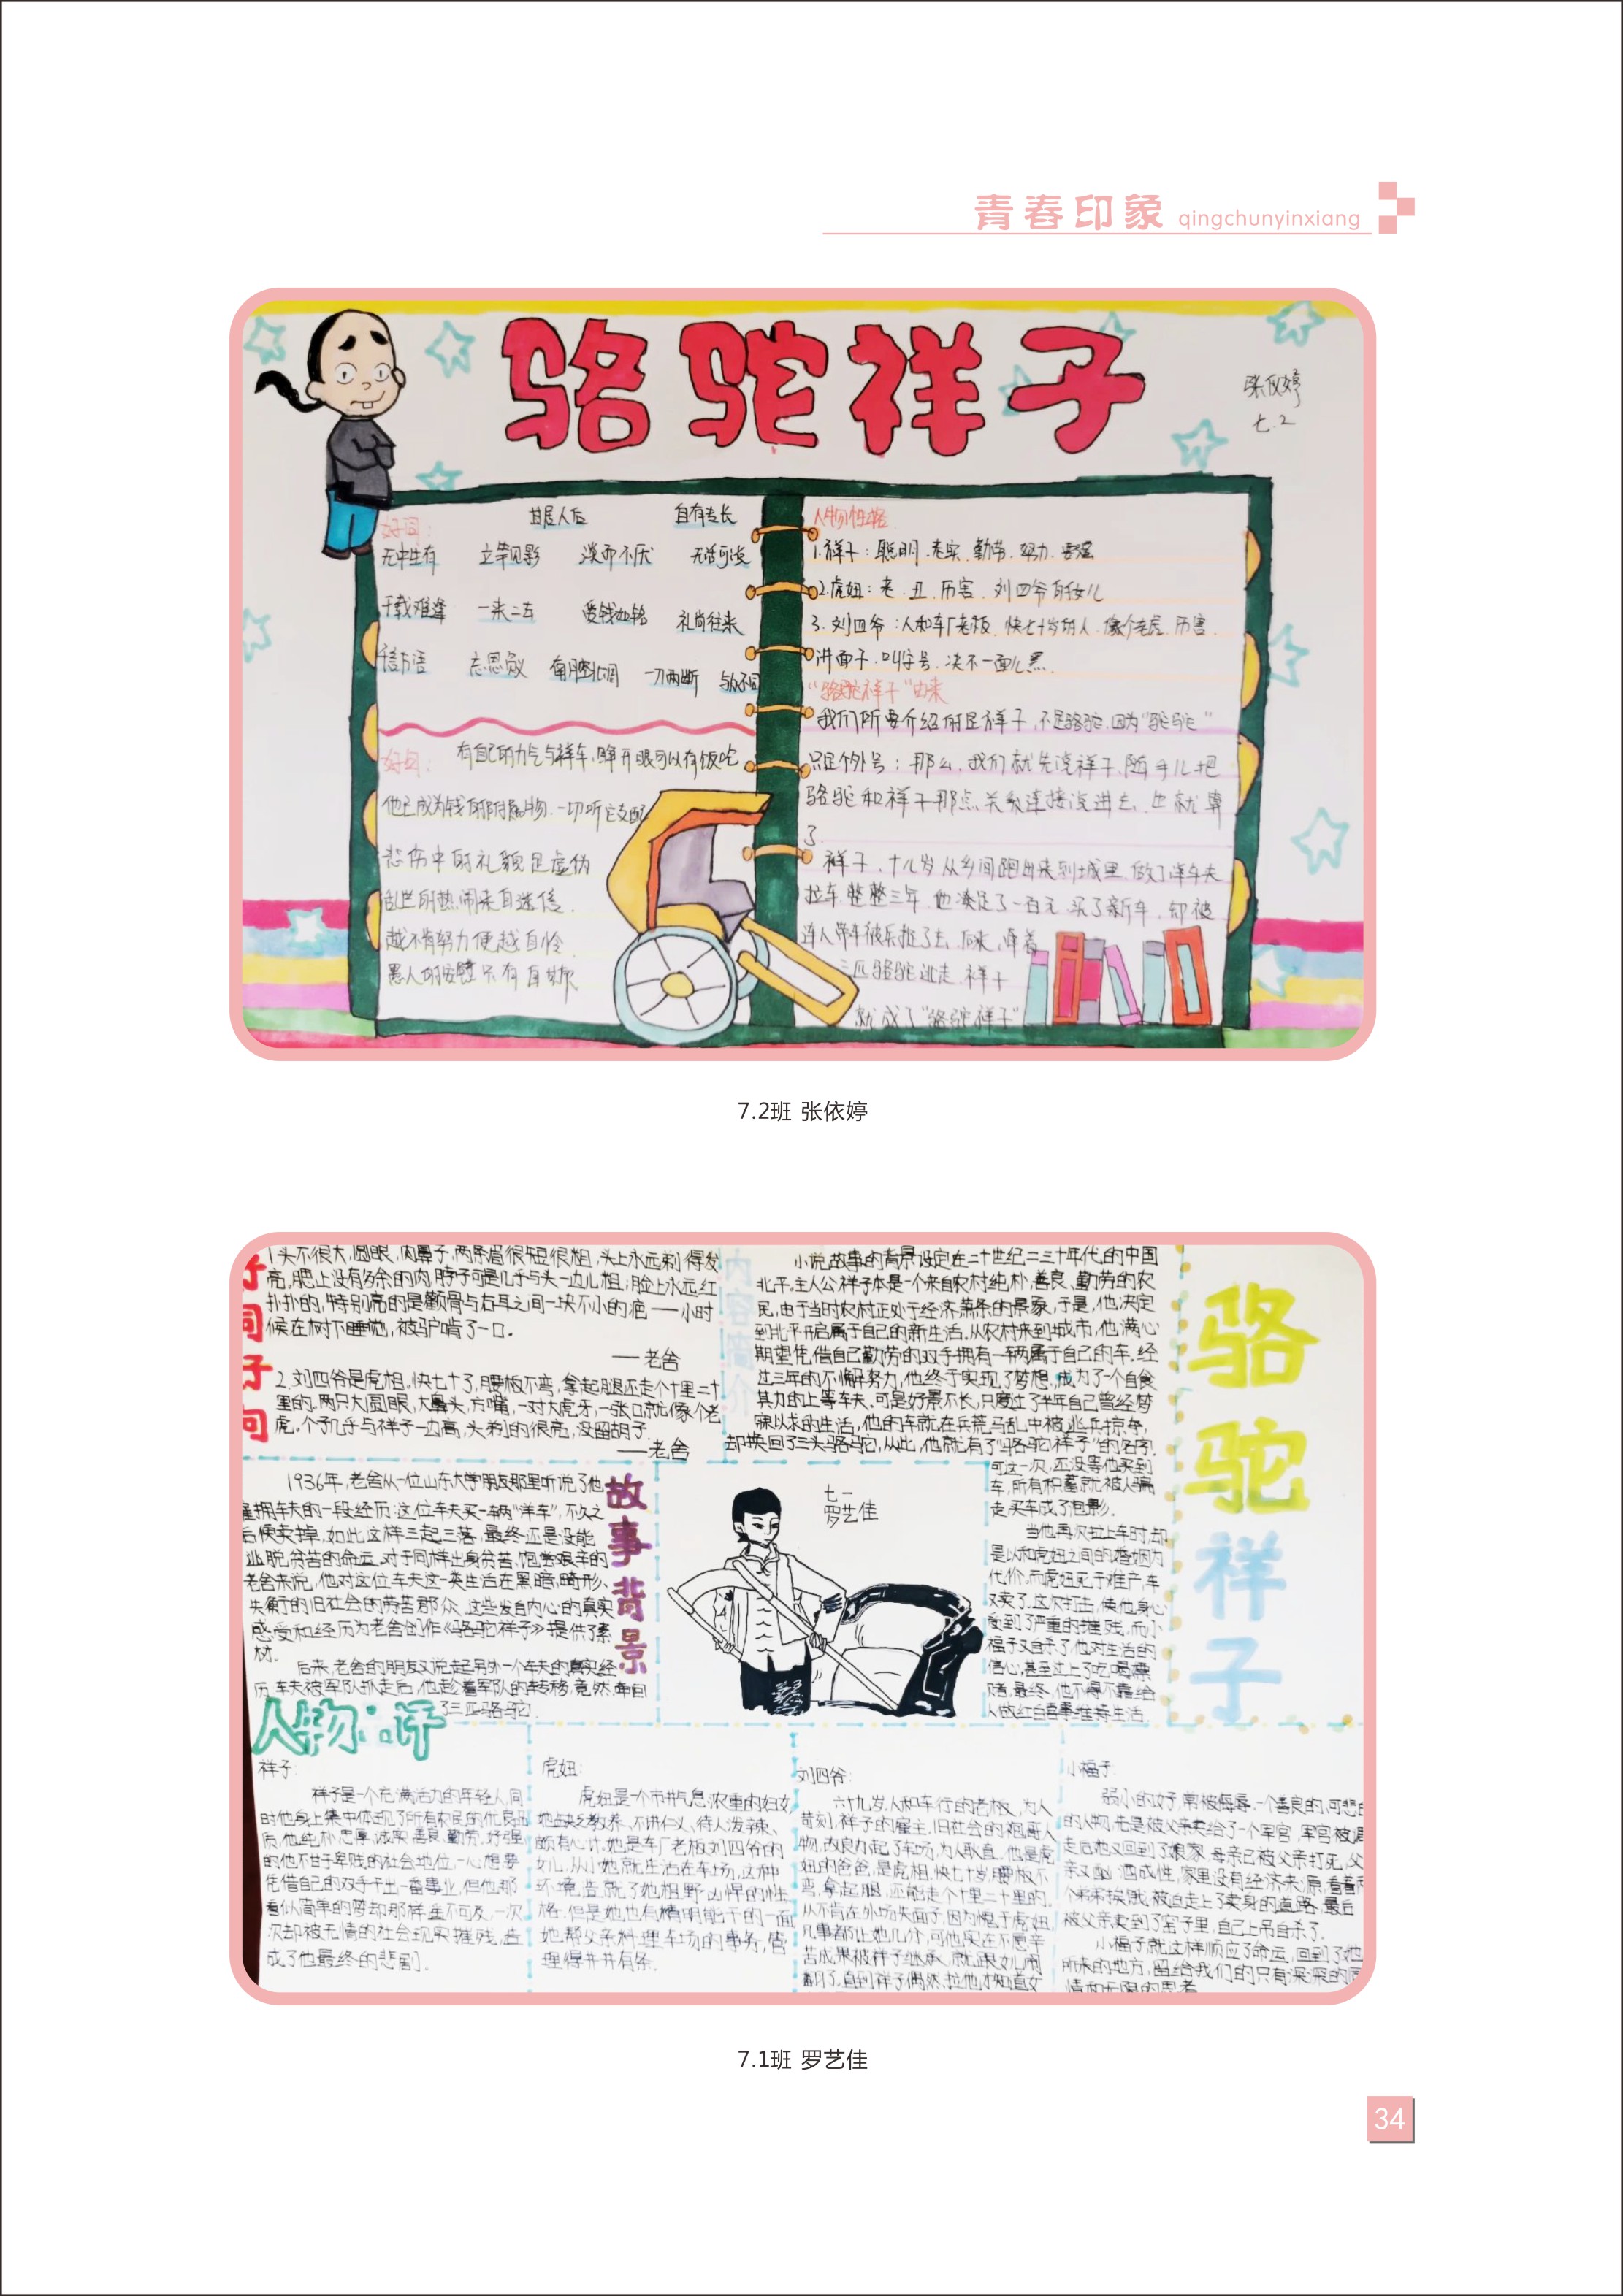 青春印象 qingchunyinxiang
骆驼祥子
张依婷
七.2
好词:
甘居人后 自有专长
无中生有 立竿见影 淡而不厌 无话可说
千载难逢 一来二去 爱钱如命 礼尚往来
千言万语 忘恩负义 南腔北调 一刀两断 与众不同
好句: 有自己的力气与洋车,睁开眼可以有饭吃
他已成为钱的附属物,一切听它支配
悲伤中的礼貌是虚伪
乱世的热闹来自迷信.
越不肯努力便越自怜
愚人的安慰只有自欺
人物性格
1.祥子:聪明.老实.勤劳.努力.要强
2.虎妞:老.丑.厉害.刘四爷的女儿
3.刘四爷:人和车厂老板.快七十岁的人.像个老虎.厉害.
讲面子.叫字号.决不一面儿黑.
“骆驼祥子”由来
我们所要介绍的是祥子,不是骆驼,因为“骆驼”
只是个外号;那么,我们就先说祥子,随手儿把
骆驼和祥子那点关系连接说进去,也就算
了.
祥子,十几岁从乡间跑出来到城里,做了洋车夫
拉车,整整三年,他凑足了一百元,买了新车,却被
连人带车被兵抓了去,后来,牵着
三匹骆驼逃走,祥子
就成了“骆驼祥子”
7.2班 张依婷
好词好句
1.头不很大,圆眼,肉鼻子,两条眉很短很粗,头上永远剃得发
亮,腮上没有多余的肉,脖子可是几乎与头一边儿粗;脸上永远红
扑扑的,特别亮的是颧骨与右耳之间一块不小的疤——小时
候在树下睡觉,被驴啃了一口。
——老舍
2.刘四爷是虎相。快七十了,腰板不弯,拿起腿还走个十里二十
里的。两只大圆眼,大鼻头,方嘴,一对大虎牙,一张口就像个老
虎。个子几乎与祥子一边高,头剃的很亮,没留胡子.
——老舍
内容简介
小说故事的背景设定在二十世纪二三十年代的中国
北平,主人公祥子本是一个来自农村纯朴、善良、勤劳的农
民,由于当时农村正处于经济萧条的景象,于是,他决定
到北平开启属于自己的新生活.从农村来到城市,他满心
期望凭借自己勤劳的双手拥有一辆属于自己的车.经
过三年的不懈努力,他终于实现了梦想,成为了一个自食
其力的上等车夫.可是好景不长,只度过了半年自己曾经梦
寐以求的生活,他的车就在兵荒马乱中被逃兵掠夺,
却换回了三头骆驼,从此,他就有了“骆驼祥子”的名字.
可这一次,还没等他买到
车,所有积蓄就被人骗
走,买车成了泡影.
当他再次拉上车时,却
是以和虎妞之间的婚姻为
代价.而虎妞死于难产,车
又卖了.这次打击,使他身心
受到了严重的摧残,而小
福子又自杀了,他对生活的
信心,甚至过上了吃喝嫖
赌,最终,他不得不靠给
人做红白喜事维持生活.
骆驼祥子
故事背景
1936年,老舍从一位山东大学朋友那里听说了他
雇拥车夫的一段经历:这位车夫买一辆“洋车”,不久之
后便卖掉,如此这样三起三落,最终还是没能
逃脱贫苦的命运.对于同样出身贫苦,饱尝艰辛的
老舍来说,他对这位车夫这一类生活在黑暗、畸形、
失衡的旧社会的劳苦群众,这些发自内心的真实
感受和经历为老舍创作《骆驼祥子》提供了素
材.
后来,老舍的朋友又说起另外一个车夫的真实经
历,车夫被军队抓走后,他趁着军队的转移,竟然牵回
了三匹骆驼.
七一
罗艺佳
人物点评
祥子:
祥子是一个充满活力的年轻人,同
时他身上集中体现了所有农民的优良品
质,他纯朴忠厚,诚实善良,勤劳,好强
的他不甘于卑贱的社会地位,一心想要
凭借自己的双手干出一番事业,但他那
看似简单的梦却那样遥不可及,一次
次却被无情的社会现实摧残,造
成了他最终的悲剧.
虎妞:
虎妞是个市井气息浓重的妇女,
她缺乏教养、不讲仁义、待人泼辣、
颇有心计.她是车厂老板刘四爷的
女儿,从小她就生活在车场,这种
环境造就了她粗野凶悍的性
格.但是她也有精明能干的一面
她帮父亲料理车场的事务,管
理得井井有条.
刘四爷:
六十九岁,人和车行的老板,为人
苛刻,祥子的雇主,旧社会的袍哥人
物,改良办起了车场,为人耿直.他是虎
妞的爸爸,是虎相,快七十岁,腰板不
弯,拿起腿,还能走个十里二十里的.
从不肯在外场失面子,因为愧于虎妞,
凡事都让她几分,可他实在不愿辛
苦成果被祥子继承,就跟女儿闹
翻了,直到祥子偶然拉他才知道女
小福子:
弱小的女子,常被侮辱,一个善良的,可悲的
的人物,先是被父亲卖给了一个军官,军官被调
走后她又回到了娘家.母亲已被父亲打死,父
亲又酗酒成性,家里没有经济来源,看着两
个弟弟挨饿,被迫走上了卖身的道路.最后
被父亲卖到了窑子里,自己上吊自杀了.
小福子就这样顺应了命运,回到了她
所来的地方,留给我们的只有深深的同
情和无限的思考
7.1班 罗艺佳
34